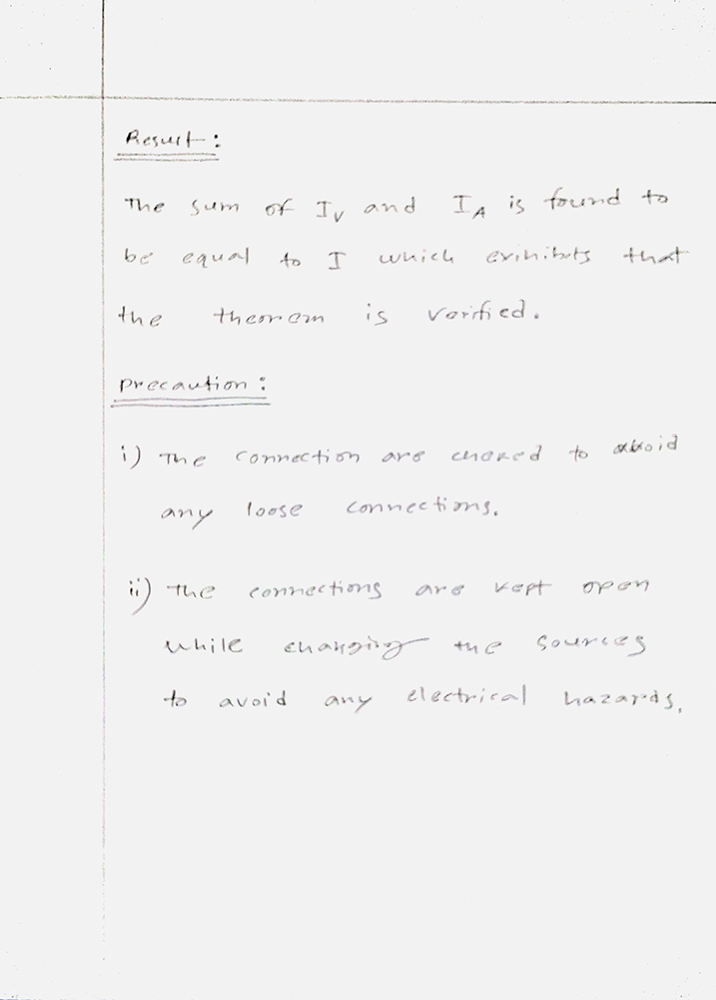 Result:
The sum of I_V and I_A is found to
be equal to I which exihibits that
the theorem is verified.
Precaution:
i) The connection are cheked to avoid
any loose connections.
ii) The connections are kept open
while changing the sources
to avoid any electrical hazards.